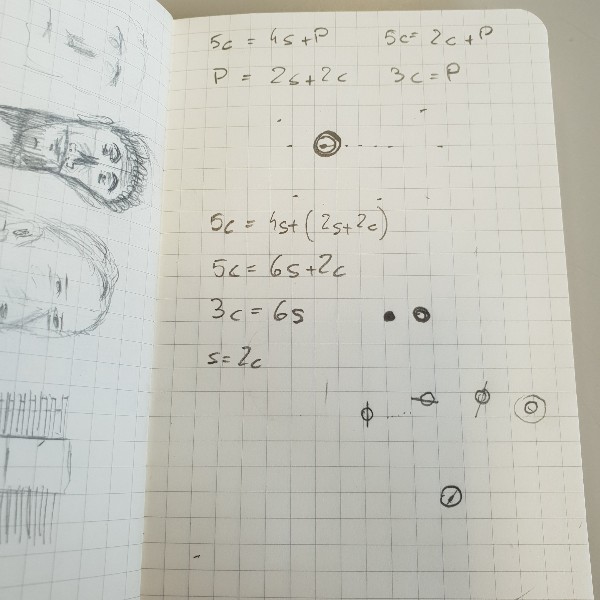 5c = 4s+P 5c= 2c+P
P = 2s+2c 3c=P
5c= 4s+(2s+2c)
5c= 6s+2c
3c=6s
s=2c